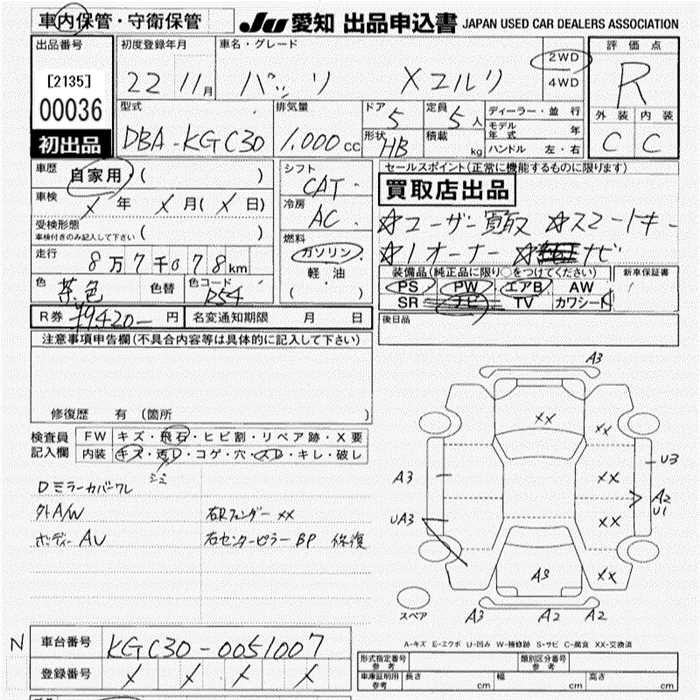 車内保管・守衛保管 JU 愛知 出品申込書 JAPAN USED CAR DEALERS ASSOCIATION
出品番号 初度登録年月 車名・グレード 2WD 評価点
[2135] 22 11月 4WD R
00036 型式 排気量 ドア 5 定員 5人 ディーラー・並行 外装 内装
初出品 DBA-KGC30 1,000cc 形状 HB 積載 kg モデル年式 年 C C
ハンドル 左・右
車歴 自家用・( ) シフト セールスポイント(正常に機能するものに限ります)
車検 X年 X月(X日) CAT・ 買取店出品
受検形態 冷房 ☆ユーザー買取 ☆スマートキー
車検付きのみ記入して下さい ( ) AC・ ☆1オーナー ナビ
走行 8万7千078km 燃料 ガソリン・
軽油 装備品(純正品に限り○をつけてください) 新車保証書
色 茶色 色替 色コード R54 ( ) PS PW エアB AW
SR ナビ TV カワシート
R券 ¥9420- 円 名変通知期限 月 日 後日品
注意事項申告欄(不具合内容等は具体的に記入して下さい)
修復歴 有 (箇所 )
検査員 FW キズ・飛石・ヒビ割・リペア跡・X要
記入欄 内装 キズ・汚レ・コゲ・穴・スレ・キレ・破レ
シミ
Dミラーカバーワレ
外A/W 右Rフェンダー XX
ボディーAU 右センターピラー BP 修復
A3
XX
XX
A3 XX U3
A2
U1
UA3 XX
AS XX
スペア A3 A2 A2
A-キズ E-エクボ U-凹み W-補修跡 S-サビ C-腐食 XX-交換済
N 車台番号 KGC30-0051007
登録番号 X X X X
形式指定番号 参考 類別区分番号 参考
車庫証明用 参考 長さ cm 幅 cm 高さ cm